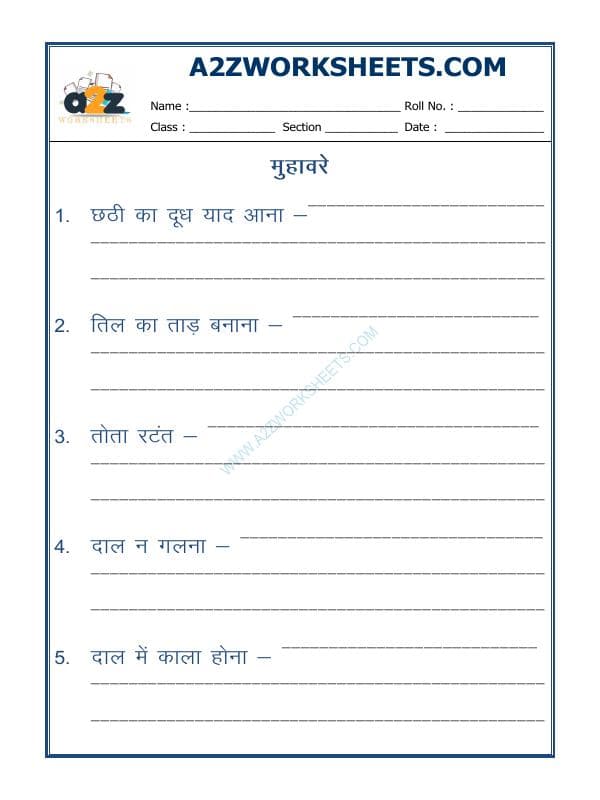 A2ZWORKSHEETS.COM
a2z
WORKSHEETS
Name :______________________________ Roll No. : ____________
Class : ____________ Section __________ Date : ______________
मुहावरे
1. छठी का दूध याद आना –
2. तिल का ताड़ बनाना –
WWW.A2ZWORKSHEETS.COM
3. तोता रटंत –
4. दाल न गलना –
5. दाल में काला होना –